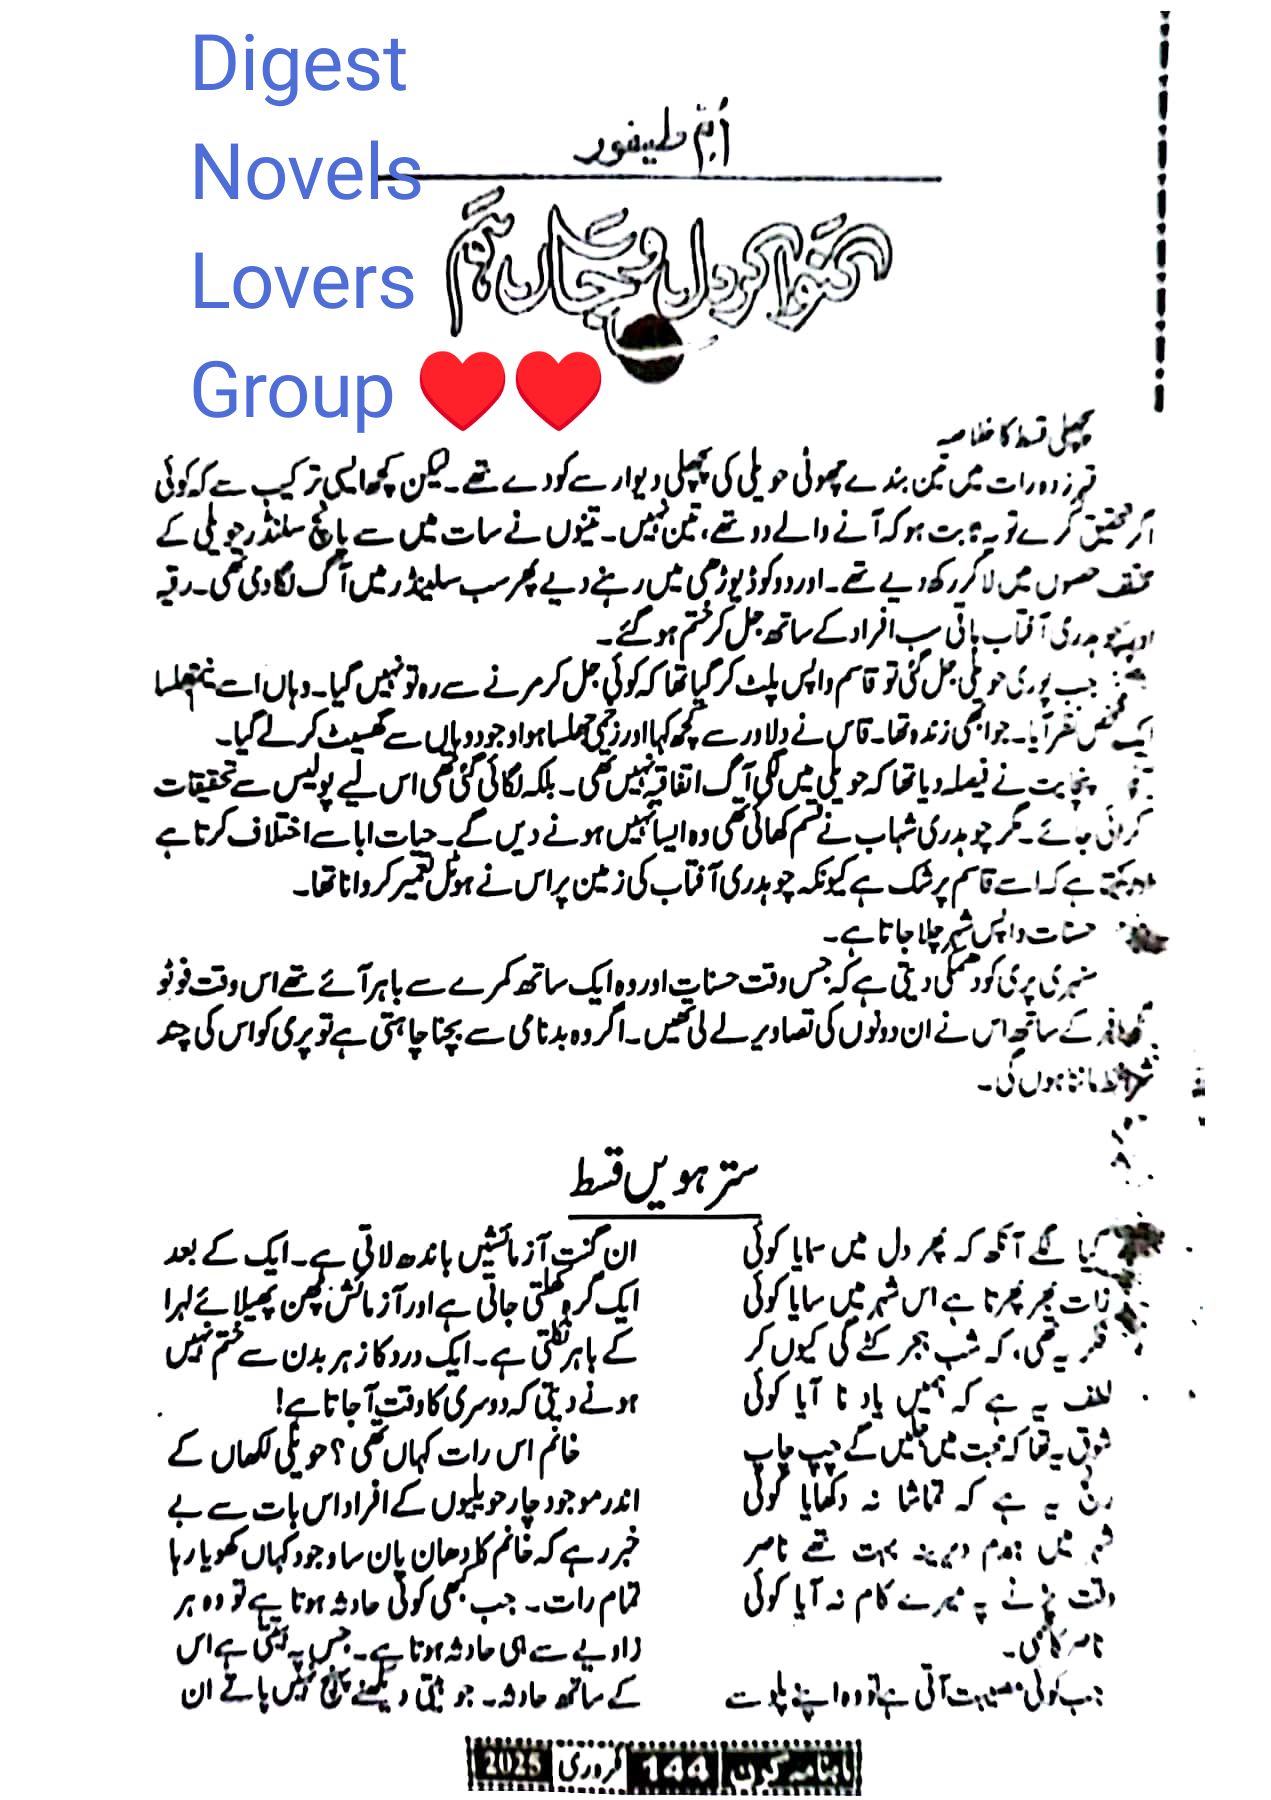 Digest
Novels
Lovers
Group ❤❤
اُمِّ طیفور
گنوا کر دل و جاں ہم
پچھلی قسط کا خلاصہ
رات میں تین بندے چھوٹی حویلی کی پچھلی دیوار سے کودے تھے۔ لیکن کچھ ایسی ترکیب سے کہ کوئی
اگر تحقیق کرے تو یہ ثابت ہو کہ آنے والے دو تھے، تین نہیں۔ تینوں نے سات میں سے پانچ سلنڈر حویلی کے
مختلف حصوں میں لا کر رکھ دیے تھے۔ اور دو کو ڈیوڑھی میں رہنے دیے پھر سب سلینڈر میں آگ لگا دی تھی۔ رقیہ
اور چوہدری آفتاب باقی سب افراد کے ساتھ جل کر ختم ہو گئے۔
جب پوری حویلی جل گئی تو قاسم واپس پلٹ کر گیا تھا کہ کوئی جل کر مرنے سے رہ تو نہیں گیا۔ وہاں اسے نیم جھلسا
ایک شخص نظر آیا۔ جو ابھی زندہ تھا۔ قاسم نے دلاور سے کچھ کہا اور زخمی جھلسا ہوا وجود وہاں سے گھسیٹ کر لے گیا۔
پنچایت نے فیصلہ دیا تھا کہ حویلی میں لگی آگ اتفاقیہ نہیں تھی۔ بلکہ لگائی گئی تھی اس لیے پولیس سے تحقیقات
کرائی جائے۔ مگر چوہدری شہاب نے قسم کھائی تھی وہ ایسا نہیں ہونے دیں گے۔ حیات ابا سے اختلاف کرتا ہے
اور کہتا ہے کہ اسے قاسم پر شک ہے کیونکہ چوہدری آفتاب کی زمین پر اس نے ہوٹل تعمیر کروانا تھا۔
حسنات واپس شہر چلا جاتا ہے۔
سنہری پری کو دھمکی دیتی ہے کہ جس وقت حسنات اور وہ ایک ساتھ کمرے سے باہر آئے تھے اس وقت فوٹو
گرافر کے ساتھ اس نے ان دونوں کی تصاویر لے لی تھیں۔ اگر وہ بدنامی سے بچنا چاہتی ہے تو پری کو اس کی چند
شرائط ماننا ہوں گی۔
سترہویں قسط
کیا لگے آنکھ کہ پھر دل میں سمایا کوئی
رات بھر پھرتا ہے اس شہر میں سایا کوئی
فکر یہ تھی، کہ شب ہجر کٹے گی کیوں کر
لطف یہ ہے کہ ہمیں یاد نا آیا کوئی
شوق یہ تھا کہ محبت میں جلیں گے چپ چاپ
رنج یہ ہے کہ تماشا نہ دکھایا کوئی
شہر میں ہمدم دیرینہ بہت تھے ناصر
وقت پڑنے پہ میرے کام نہ آیا کوئی
ناصر کاظمی۔
جب کوئی مصیبت آتی ہے تو وہ اپنے پلو سے
ان گنت آزمائشیں باندھ لاتی ہے۔ ایک کے بعد
ایک گرہ کھلتی جاتی ہے اور آزمائش پھن پھیلائے لہرا
کے باہر نکلتی ہے۔ ایک درد کا زہر بدن سے ختم نہیں
ہونے دیتی کہ دوسری کا وقت آ جاتا ہے!
خانم اس رات کہاں تھی؟ حویلی لکھاں کے
اندر موجود چار حویلیوں کے افراد اس بات سے بے
خبر رہے کہ خانم کا دھان پان سا وجود کہاں کھویا رہا
تمام رات۔ جب بھی کوئی حادثہ ہوتا ہے تو وہ ہر
زاویے سے ہی حادثہ ہوتا ہے۔ جس پہ بیتتی ہے اس
کے ساتھ حادثہ۔ جو بیتی دیکھنے پہنچ نہیں پاتے ان
ماہنامہ کرن 144 فروری 2025